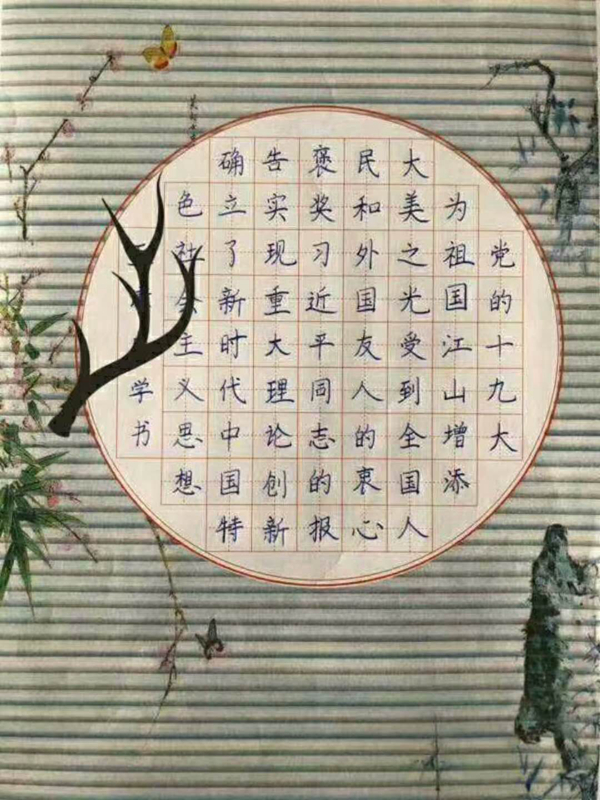 党的十九大
为祖国江山增添
大美之光受到全国人
民和外国友人的衷心
褒奖习近平同志的报
告实现重大理论创新
确立了新时代中国特
色社会主义思想
学书